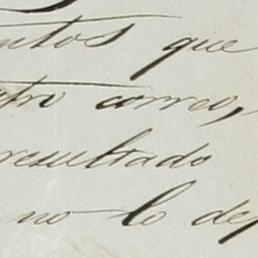 ntos que
tro correo,
resultado
no lo dep